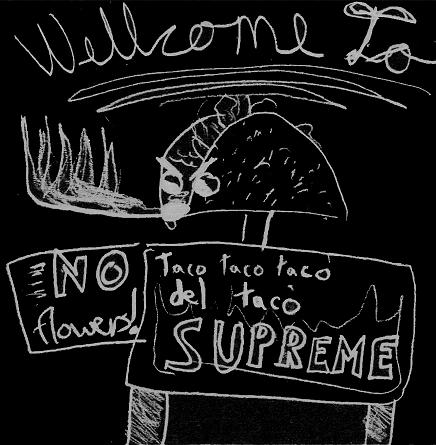 Wellcome To
NO
flowers!
Taco taco taco
del taco
SUPREME